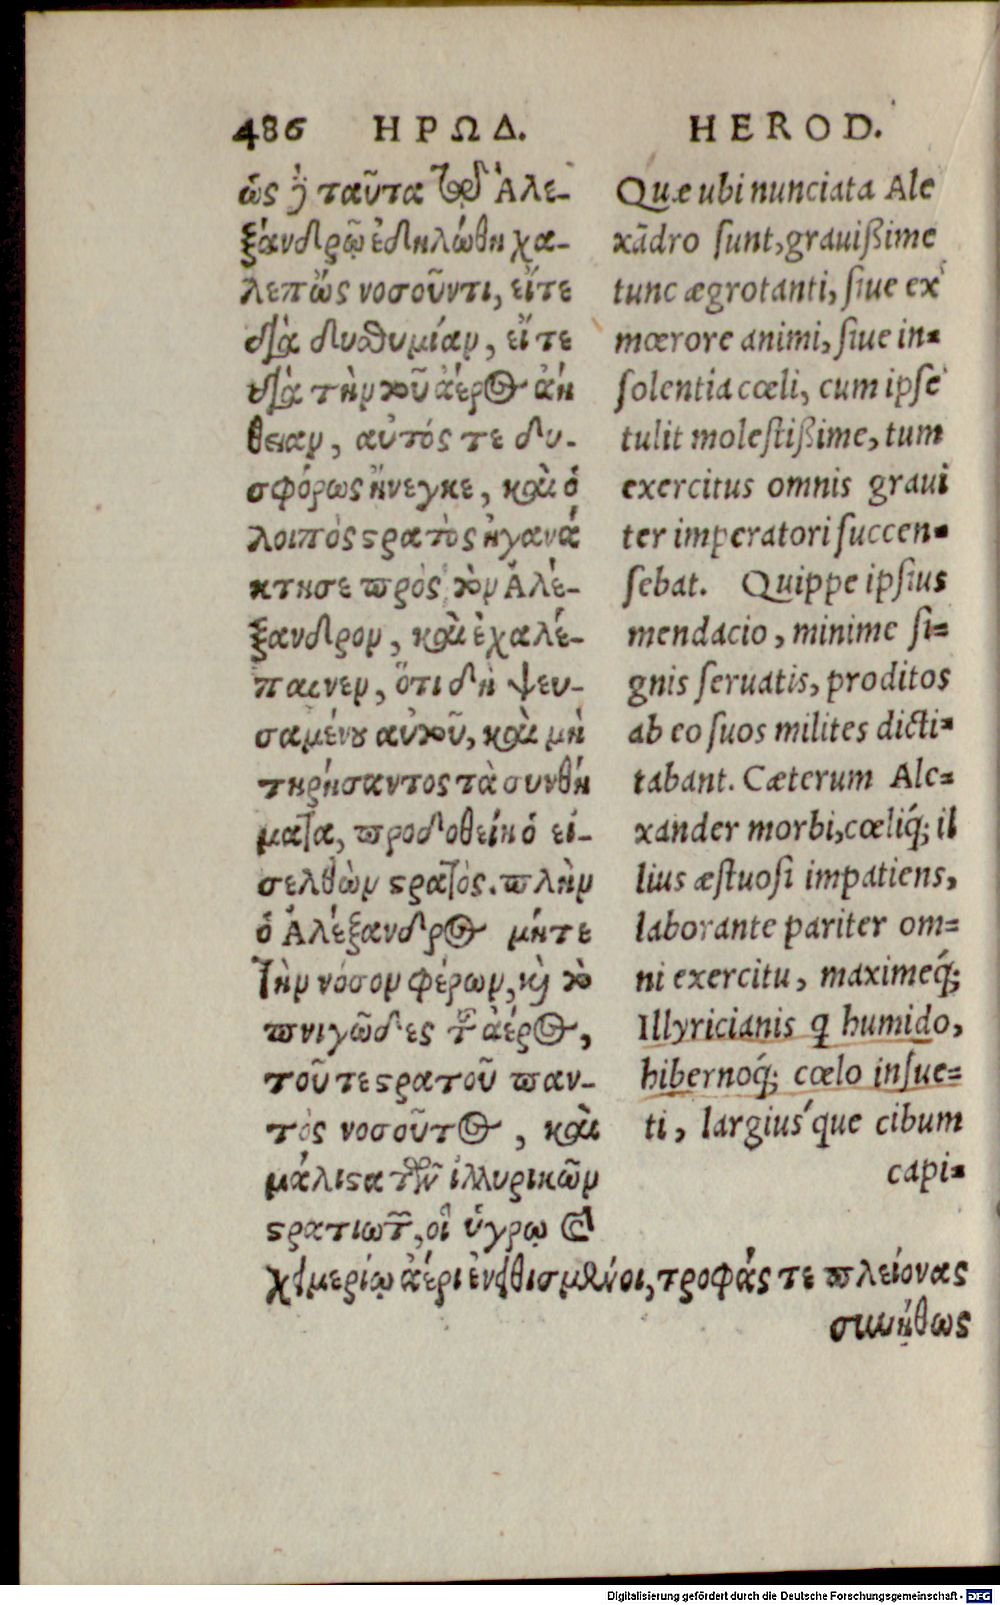 486 ΗΡΩΔ.
ὡς ἢ ταῦτα τῷ Ἀλε-
ξάνδρῳ ἐδηλώθη χα-
λεπῶς νοσοῦντι, εἴτε
διὰ δυσθυμίαν, εἴτε
διὰ τὴν τοῦ ἀέρος ἀή
θειαν, αὐτός τε δυ-
σφόρως ἤνεγκε, καὶ ὁ
λοιπὸς στρατὸς ἠγανά
κτησε πρὸς τὸν Ἀλέ-
ξανδρον, καὶ ἐχαλέ-
παινεν, ὅτι δὴ ψευ-
σαμένου αὐτοῦ, καὶ μὴ
τηρήσαντος τὰ συνθή
ματα, προδοθείη ὁ εἰ-
σελθὼν στρατός. πλὴν
ὁ Ἀλέξανδρος μήτε
τὴν νόσον φέρων, καὶ τὸ
πνιγῶδες τοῦ ἀέρος,
τοῦ τε στρατοῦ παν-
τὸς νοσοῦντος, καὶ
μάλιστα τῶν ἰλλυρικῶν
στρατιωτῶν, οἳ ὑγρῷ καὶ
χειμερίῳ ἀέρι ἐνειθισμένοι, τροφάς τε πλείονας
συνήθως
HEROD.
Quæ ubi nunciata Ale
xãdro sunt, grauißime
tunc ægrotanti, siue ex
mœrore animi, siue in-
solentia cœli, cum ipse
tulit molestißime, tum
exercitus omnis graui
ter imperatori succen-
sebat. Quippe ipsius
mendacio, minime si-
gnis seruatis, proditos
ab eo suos milites dicti-
tabant. Cæterum Ale-
xander morbi, cœliq́; il
lius æstuosi impatiens,
laborante pariter om-
ni exercitu, maximeq́;
Illyricianis q humido,
hibernoq́; cœlo insue-
ti, largius'que cibum
capi-
Digitalisierung gefördert durch die Deutsche Forschungsgemeinschaft - DFG